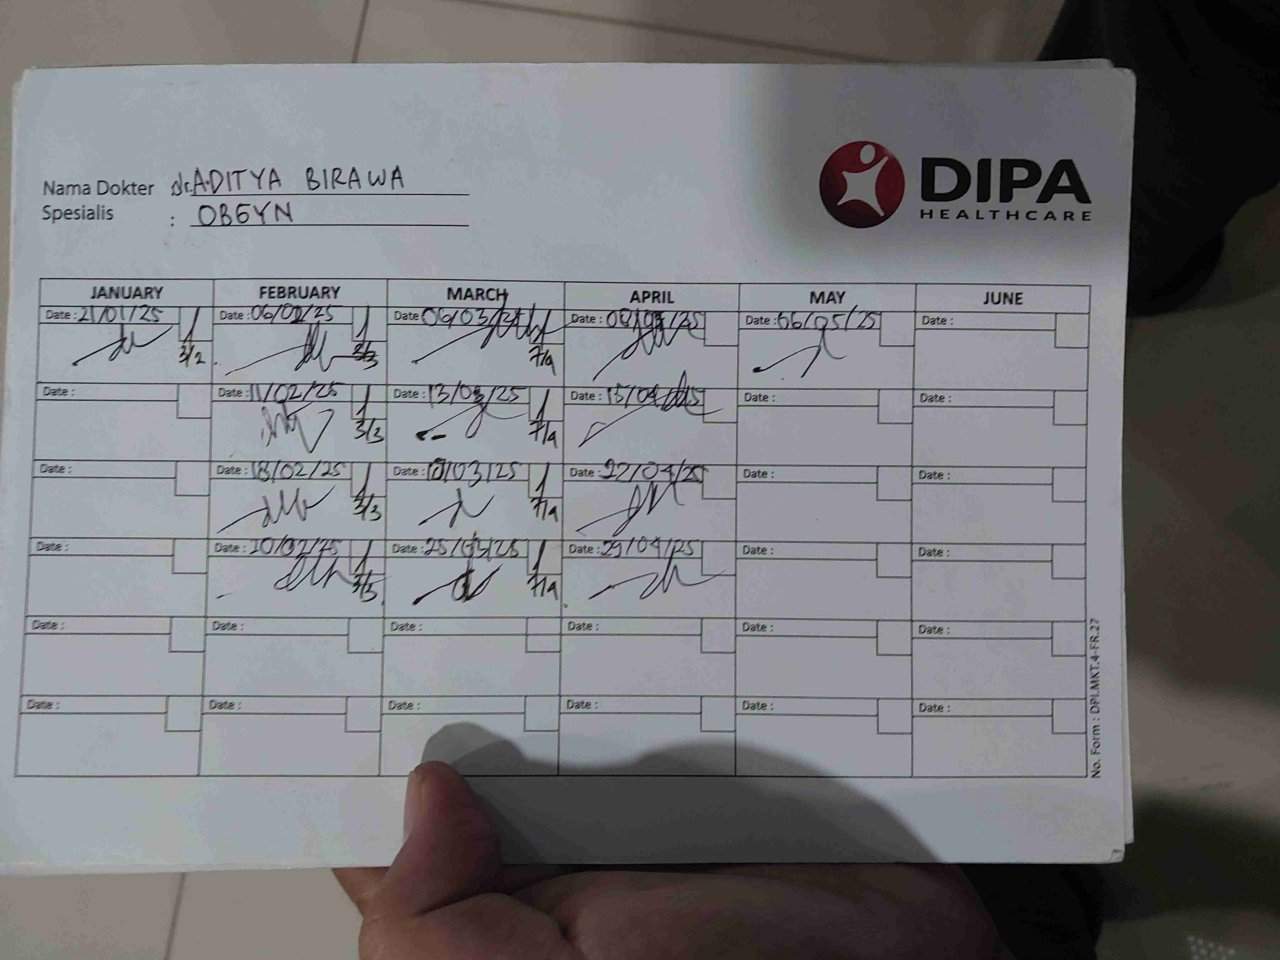 Nama Dokter : dr. ADITYA BIRAWA
Spesialis : OBGYN
DIPA
HEALTHCARE
JANUARY FEBRUARY MARCH APRIL MAY JUNE
Date : 21/01/25 Date : 06/02/25 Date : 06/03/25 Date : Date : 06/05/25 Date :
3/2 3/3 7/4
Date : Date : 11/02/25 Date : 13/03/25 Date : 15/04/25 Date : Date :
3/3 7/4
Date : Date : 18/02/25 Date : /03/25 Date : 22/04/25 Date : Date :
3/3 7/4
Date : Date : Date : 25/03/25 Date : 29/04/25 Date : Date :
3/3 7/4
Date : Date : Date : Date : Date : Date :
Date : Date : Date : Date : Date : Date :
No. Form : DPI.MKT.4-FR.27